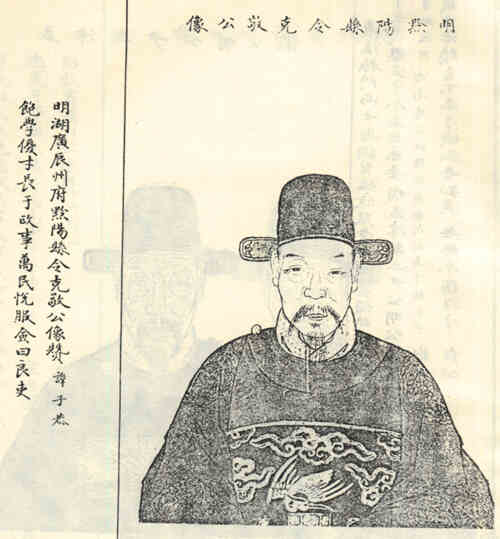 明黔陽縣令克敬公像
明湖廣辰州府黔陽縣令克敬公像贊 諱子恭
飽學優才長于政事萬民悅服僉曰良吏